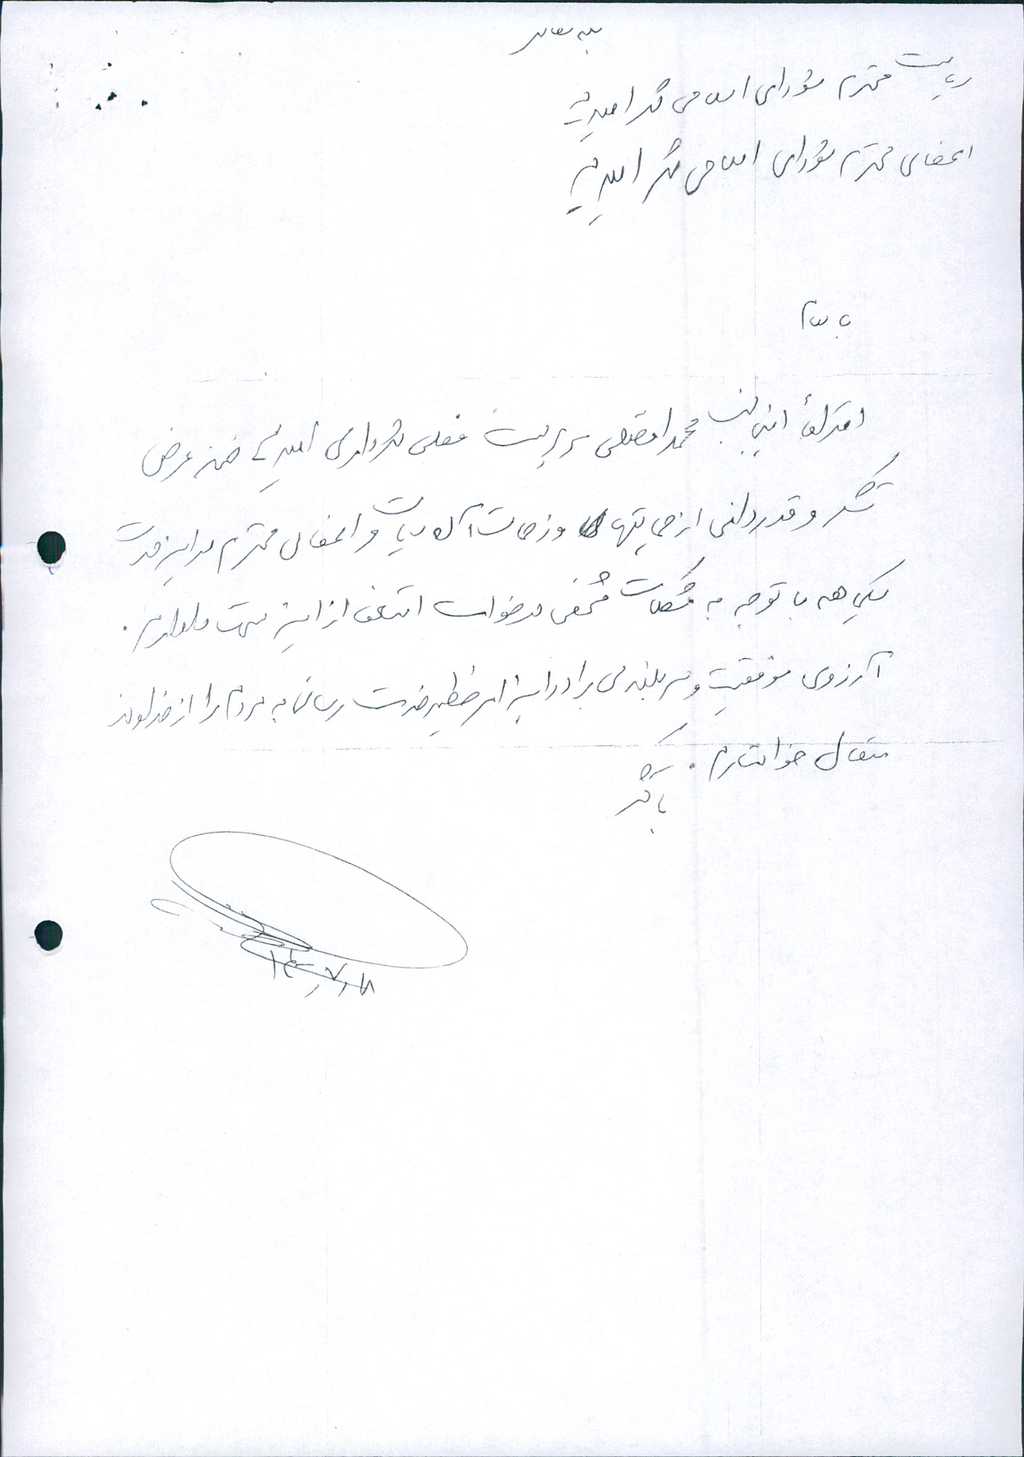 بسمه تعالی
ریاست محترم شورای اسلامی شهر امیدیه
اعضای محترم شورای اسلامی شهر امیدیه
با سلام
احتراماً اینجانب محمد سرپرست فعلی شهرداری امیدیه ضمن عرض
تشکر و قدردانی از حمایتها و زحمات آن ریاست و اعضای محترم در این مدت
یک ماهه با توجه به مشکلات شخصی درخواست استعفا از این سمت را دارم.
آرزوی موفقیت و سربلندی را در این امر خطیر خدمت رسانی به مردم را از خداوند
متعال خواستارم.
باتشکر
۱۴۰۰/۷/۱۸